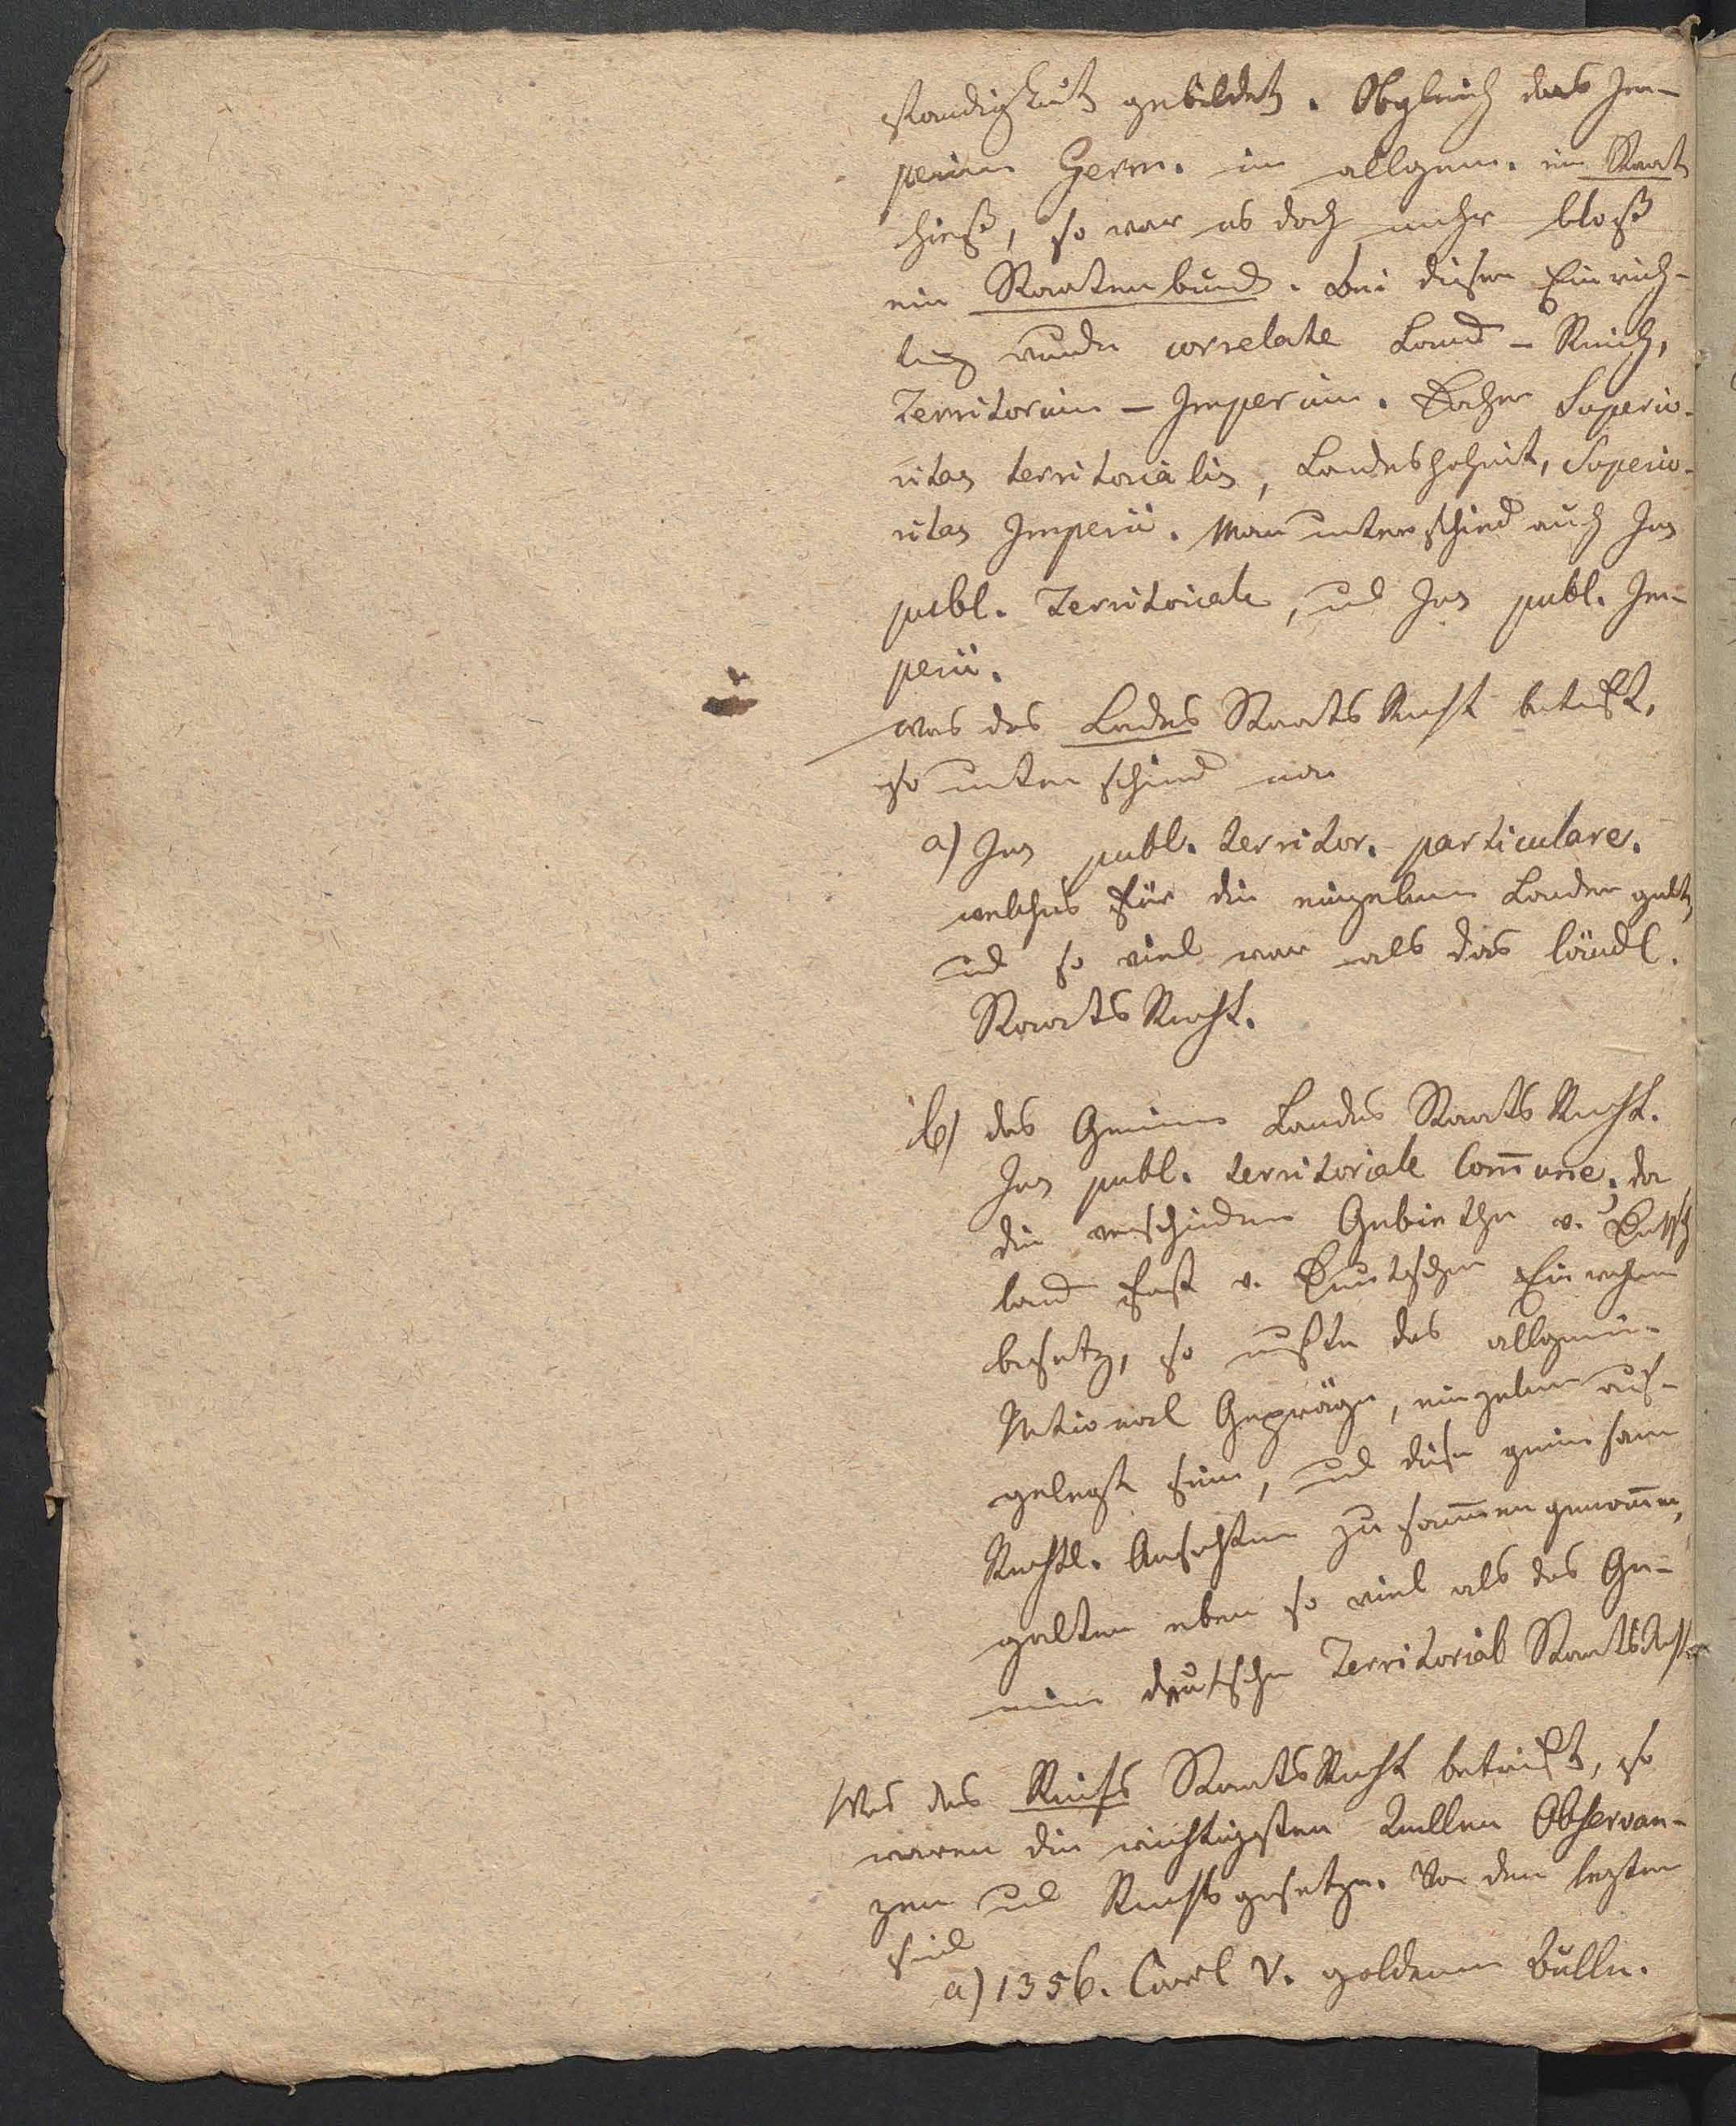 ständigkeit gebildet. Obgleich das Im-
perium Germ. im allgem. ein Staat
hieß, so war es doch mehr bloß
ein Staatenbund. Bei dieser Einrich-
tug wurden correlate Land - Reich,
Territorium - Imperium. Daher Superio-
ritas territorialis, Landeshoheit, Superio-
ritas Imperii. Man unterschied auch Jus
publ. Territoriale, und Jus publ. Im-
perii.
Was das Landes Staats Recht betrift,
so unterschied man
a) Jus publ. territor. particulare.
welches für die einzelnen Länder galt,
und so viel war als das ländl.
Staats Recht.
b) das Gemeine Landes Staats Recht.
Jus publ. territoriale Com̅une, da
die verschiedenen Gebiethe v. Deutsch
land fast v. Deutschen Einwohnern
besetz, so mußte das allgemein
National Gepräge, einzelnen auf-
gelegt sein, und diese gemeinsam
Rechtl. Ansichten zusam̅engenom̅en,
galten eben so viel als das Ge-
meine deutsche Territorial Staats Recht
Was das Reichs Staats Recht betrift, so
waren die wichtigsten Quellen Observan-
zen und Reichsgesetze. Von den lezten
sind
a) 1356. Carl V. goldene Bulle.